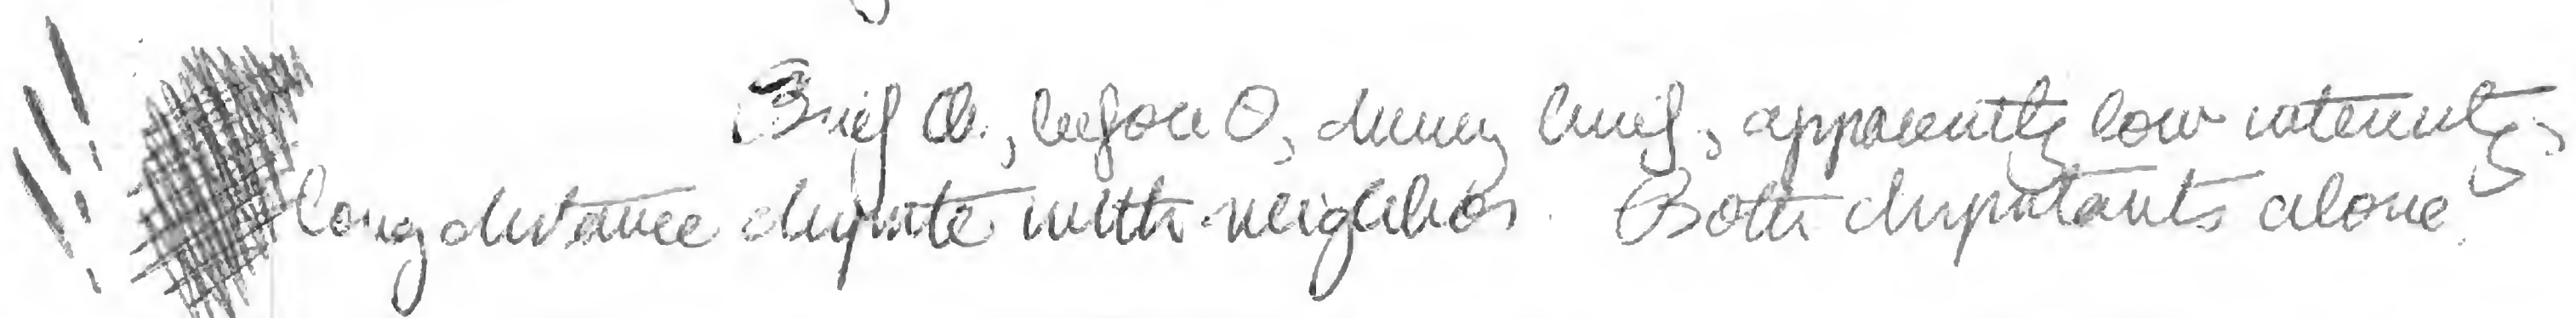 Brief Ob., before O, during brief, apparently low intensity,
long distance dispute with neighbor. Both disputants alone.